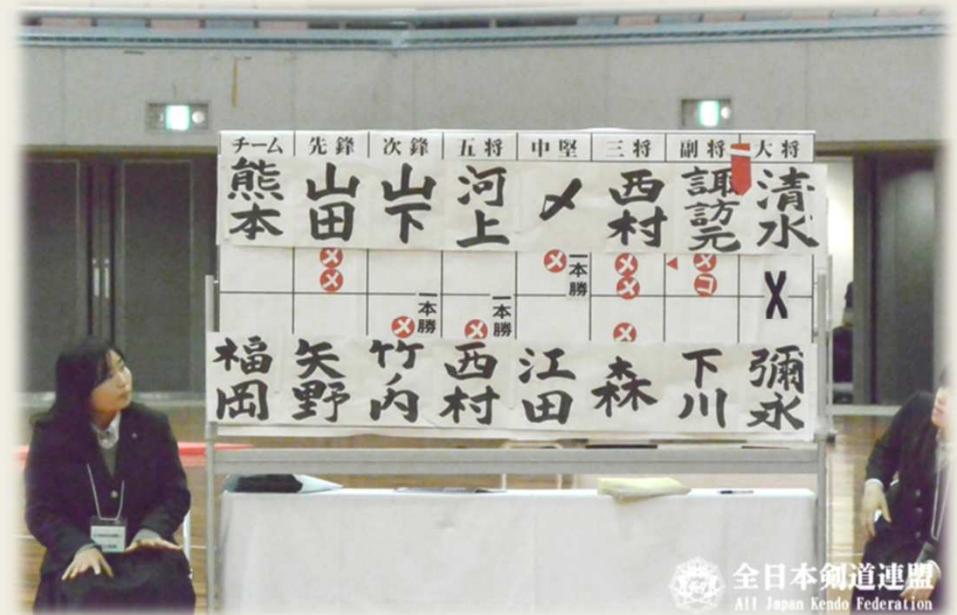 チーム 先鋒 次鋒 五将 中堅 三将 副将 大将
熊本 山田 山下 河上 〆 西村 諏訪元 清水
メ メ メ メ コ
メ 一本勝 メ X
一本勝 一本勝
メ メ メ
福岡 矢野 竹内 西村 江田 森 下川 彌永
全日本剣道連盟
All Japan Kendo Federation